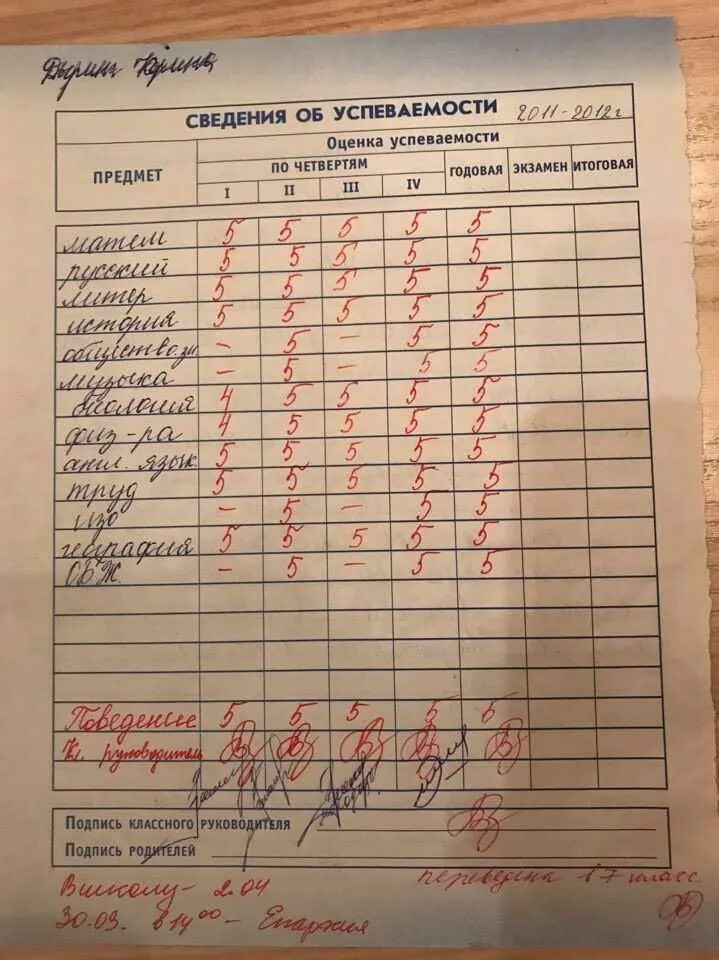 Карина
СВЕДЕНИЯ ОБ УСПЕВАЕМОСТИ 2011-2012г
Оценка успеваемости
ПРЕДМЕТ ПО ЧЕТВЕРТЯМ ГОДОВАЯ ЭКЗАМЕН ИТОГОВАЯ
I II III IV
матем 5 5 5 5 5
русский 5 5 5 5 5
литер 5 5 5 5 5
история 5 5 5 5 5
общество.зн. – 5 – 5 5
музыка – 5 – 5 5
биология 4 5 5 5 5
физ-ра 4 5 5 5 5
англ. язык. 5 5 5 5 5
труд 5 5 5 5 5
изо – 5 – 5 5
география 5 5 5 5 5
ОБЖ. – 5 – 5 5
Поведение 5 5 5 5 5
Кл. руководитель
Подпись классного руководителя
Подпись родителей
переведена в 7 класс
В школу - 2.04
30.03. в 14 00 – Епархия